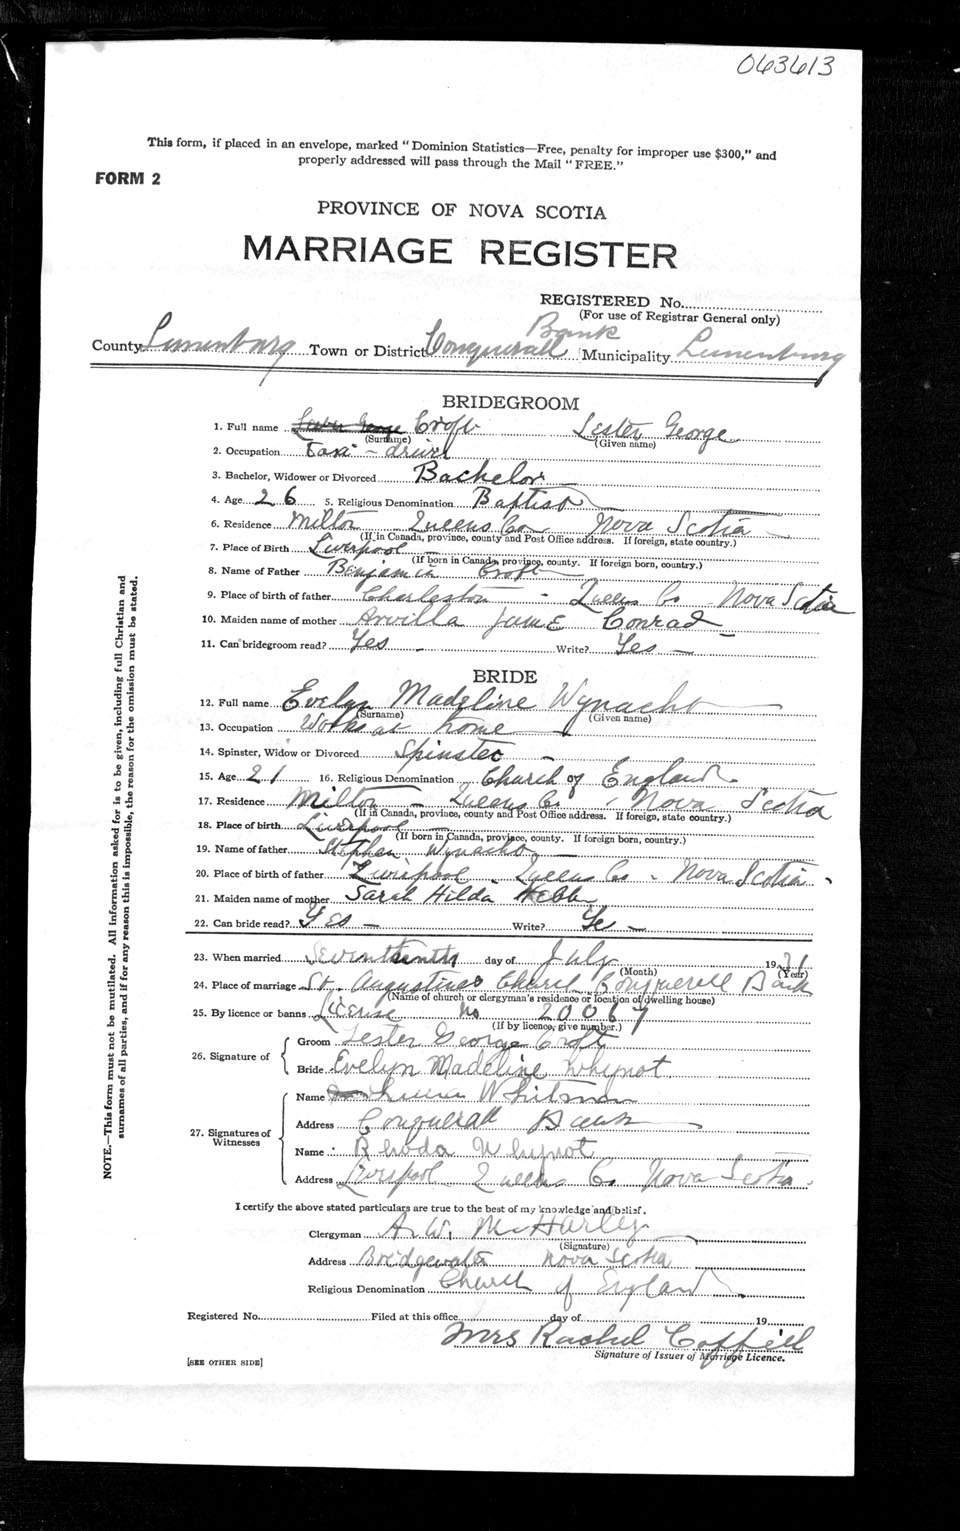 063613
This form, if placed in an envelope, marked "Dominion Statistics—Free, penalty for improper use $300," and
properly addressed will pass through the Mail "FREE."
FORM 2
PROVINCE OF NOVA SCOTIA
MARRIAGE REGISTER
REGISTERED No.
(For use of Registrar General only)
County Lunenburg Town or District Conquerall Bank Municipality Lunenburg
BRIDEGROOM
1. Full name Lester George Croft Lester George
(Surname) (Given name)
2. Occupation Taxi - driver
3. Bachelor, Widower or Divorced Bachelor
4. Age 26 5. Religious Denomination Baptist
6. Residence Milton Queens Co Nova Scotia
(If in Canada, province, county and Post Office address. If foreign, state country.)
7. Place of Birth Liverpool
(If born in Canada, province, county. If foreign born, country.)
8. Name of Father Benjamin Croft
9. Place of birth of father Charleston - Queens Co Nova Scotia
10. Maiden name of mother Arvilla Jane Conrad
11. Can bridegroom read? Yes Write? Yes
BRIDE
12. Full name Evelyn Madeline Wynacht
(Surname) (Given name)
13. Occupation Works at home
14. Spinster, Widow or Divorced Spinster
15. Age 21 16. Religious Denomination Church of England
17. Residence Milton - Queens Co, Nova Scotia
(If in Canada, province, county and Post Office address. If foreign, state country.)
18. Place of birth Liverpool
(If born in Canada, province, county. If foreign born, country.)
19. Name of father Stephen Wynacht
20. Place of birth of father Liverpool - Queens Co - Nova Scotia
21. Maiden name of mother Sarah Hilda Webber
22. Can bride read? Yes Write? Ye
23. When married Seventeenth day of July 19
(Month) (Year)
24. Place of marriage St. Augustines Church Conquerell Bank
(Name of church or clergyman's residence or location of dwelling house)
25. By licence or banns License No 20067
(If by licence, give number.)
26. Signature of
Groom Lester George Croft
Bride Evelyn Madeline Whynot
27. Signatures of Witnesses
Name Whitman
Address Conquerall Bank
Name Rhoda Whynot
Address Liverpool Queens Co Nova Scotia
I certify the above stated particulars are true to the best of my knowledge and belief.
Clergyman A. W. McHarley
(Signature)
Address Bridgewater Nova Scotia
Religious Denomination Church of England
Registered No. Filed at this office day of 19
Mrs Rachel Coffill
Signature of Issuer of Marriage Licence.
[SEE OTHER SIDE]
NOTE.—This form must not be mutilated. All information asked for is to be given, including full Christian and
surnames of all parties, and if for any reason this is impossible, the reason for the omission must be stated.